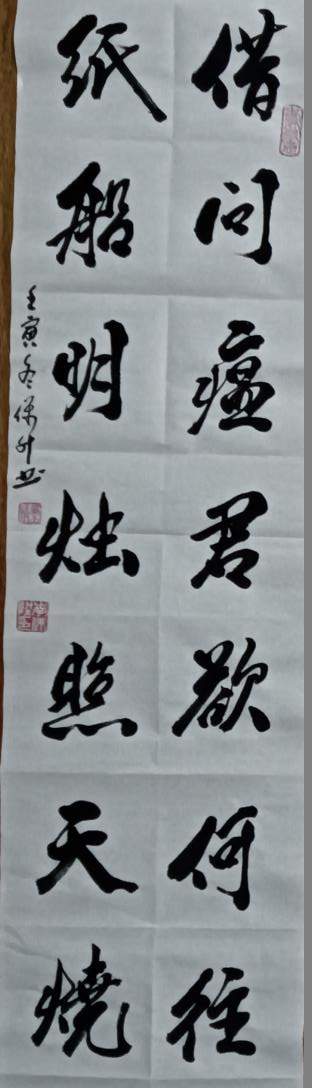 借问瘟君欲何往
纸船明烛照天烧
壬寅冬保升书